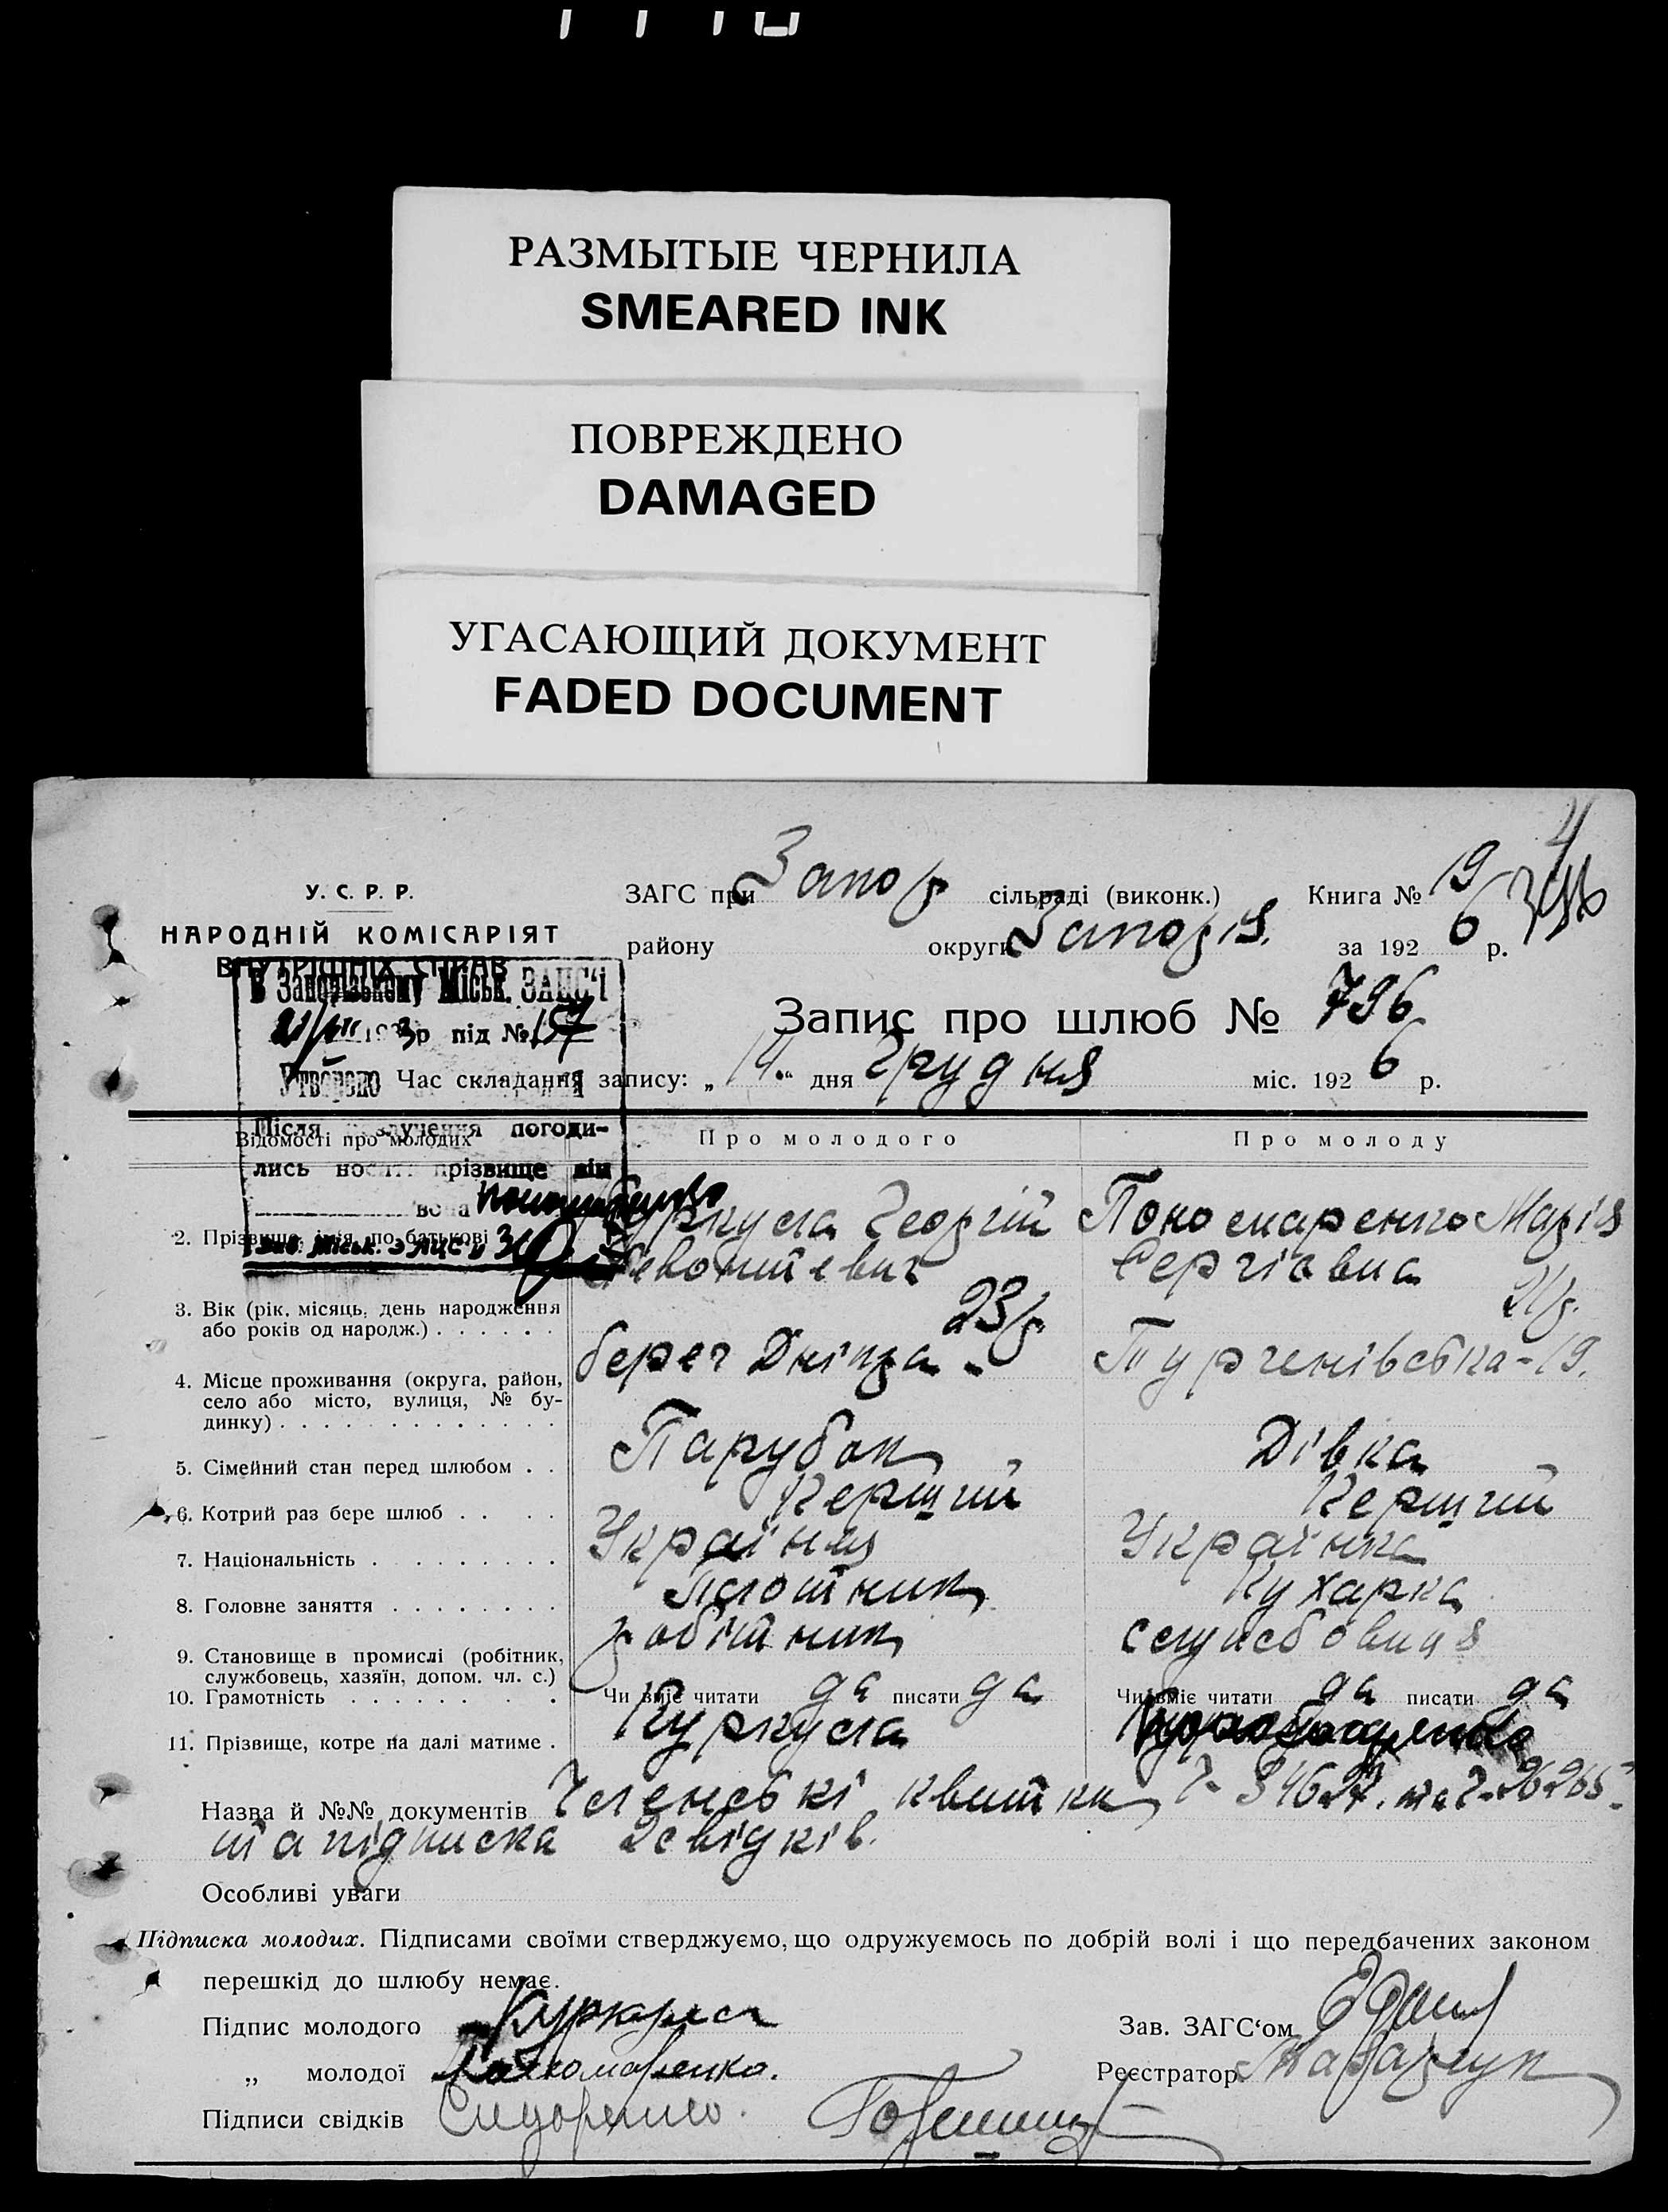 РАЗМЫТЫЕ ЧЕРНИЛА
SMEARED INK
ПОВРЕЖДЕНО
DAMAGED
УГАСАЮЩИЙ ДОКУМЕНТ
FADED DOCUMENT
У. С. Р. Р.
НАРОДНІЙ КОМІСАРІЯТ
ВНУТРІШНІХ СПРАВ
ЗАГС при Запор сільраді (виконк.) Книга № 19
району округи Запоріз. за 1926 р.
В Запорізькому Міськ. ЗАГС'і
р під № 157
Запис про шлюб № 796
Утворено
Час складання запису: „14“ дня Грудня міс. 1926 р.
Після розлучення погоди-
лись носити прізвище він
вона
Зав. Міськ. ЗАГС
Відомості про молодих Про молодого Про молоду
2. Прізвище, імя, по батькові Куркула Георгій Пономаренко Марія
Сергієвна
3. Вік (рік, місяць, день народження або років од народж.) 23р. 21р.
4. Місце проживання (округа, район, село або місто, вулиця, № будинку) берег Дніпра - Тургенівська - 19.
5. Сімейний стан перед шлюбом Парубок Дівка
6. Котрий раз бере шлюб Перший Перший
7. Національність Українець Українка
8. Головне заняття Плотник Кухарка
9. Становище в промислі (робітник, службовець, хазяїн, допом. чл. с.) робітник службовиця
10. Грамотність Чи вміє читати да писати да Чи вміє читати да писати да
11. Прізвище, котре на далі матиме Куркула
Назва й №№ документів Членські квитки Ч- 34627. та Ч- 26265
та підписка 2 свідків.
Особливі уваги
Підписка молодих. Підписами своїми стверджуємо, що одружуємось по добрій волі і що передбачених законом
перешкід до шлюбу немає.
Підпис молодого Куркула Зав. ЗАГС'ом
„ молодої Пономаренко. Реєстратор
Підписи свідків Сидоренко.